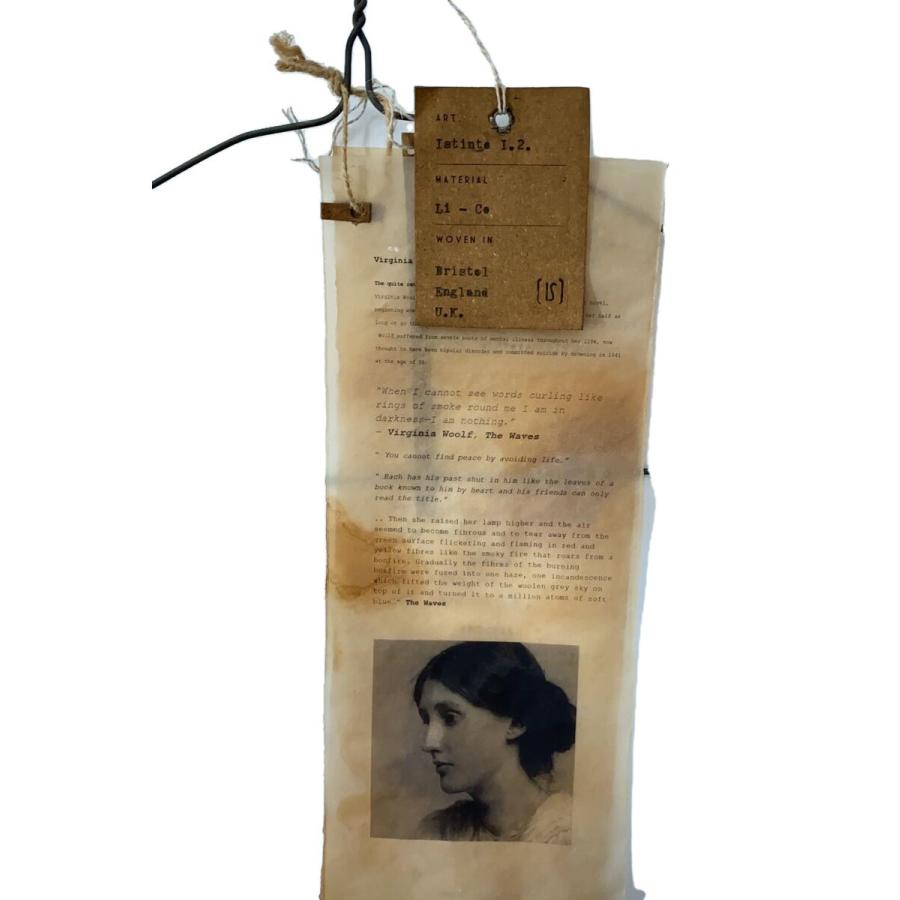 ART.
Istinto I.2.
MATERIAL
Li - Co
WOVEN IN
Bristol
England
U.K.
[IS]
Virginia
The quite
Virginia novel,
her half as
long or so
Woolf suffered from severe bouts of mental illness throughout her life, now
thought to have been bipolar disorder and committed suicide by drowning in 1941
at the age of 59.
"When I cannot see words curling like
rings of smoke round me I am in
darkness—I am nothing."
— Virginia Woolf, The Waves
" You cannot find peace by avoiding life."
" Each has his past shut in him like the leaves of a
book known to him by heart and his friends can only
read the title."
.. Then she raised her lamp higher and the air
seemed to become fibrous and to tear away from the
green surface flickering and flaming in red and
yellow fibres like the smoky fire that roars from a
bonfire. Gradually the fibres of the burning
bonfire were fused into one haze, one incandescence
which lifted the weight of the woolen grey sky on
top of it and turned it to a million atoms of soft
blue." The Waves